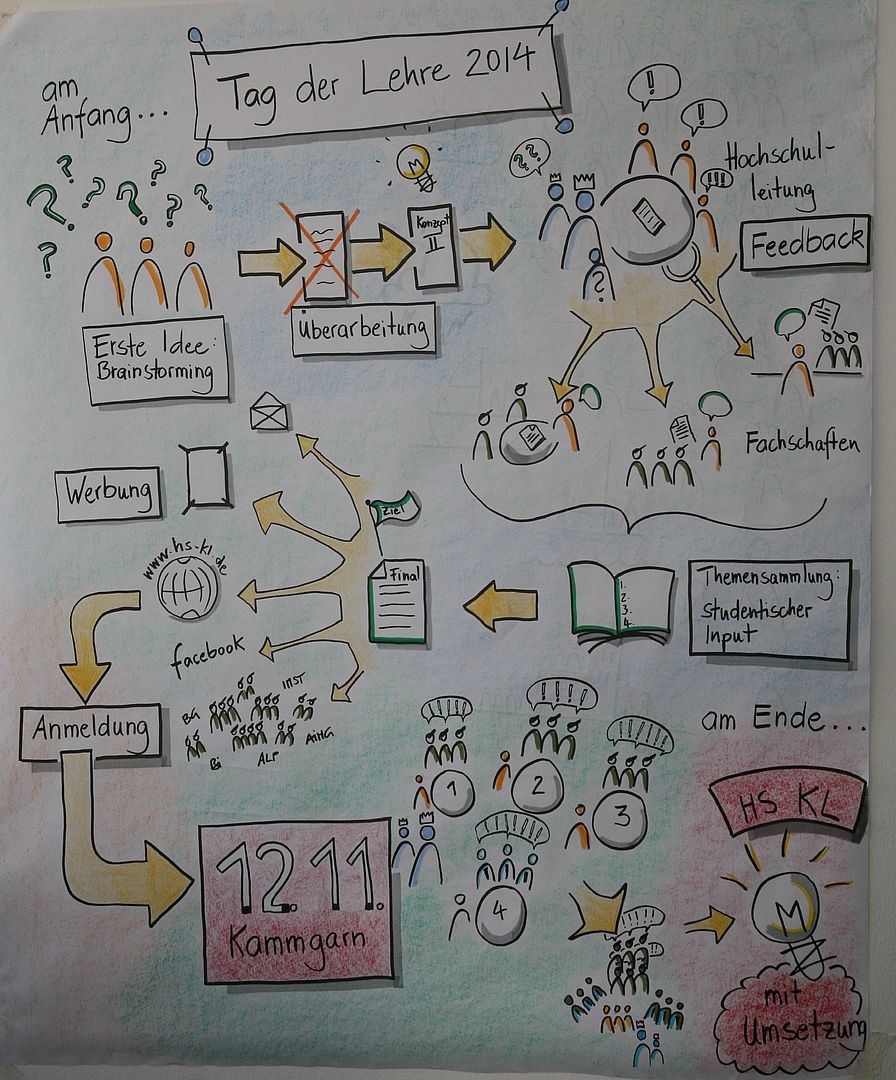 Tag der Lehre 2014
am
Anfang...
? ? ? ? ? ? ?
Erste Idee:
Brainstorming
Überarbeitung
Konzept
II
??
!
!
!!!
?
Hochschul-
leitung
Feedback
Fachschaften
Themensammlung:
Studentischer
Input
1.
2.
3.
4.
Ziel
Final
Werbung
www.hs-kl.de
facebook
BG
INST
AiMG
ALP
Bi
Anmeldung
12.11.
Kammgarn
1
2
3
4
am Ende...
HS KL
mit
Umsetzung